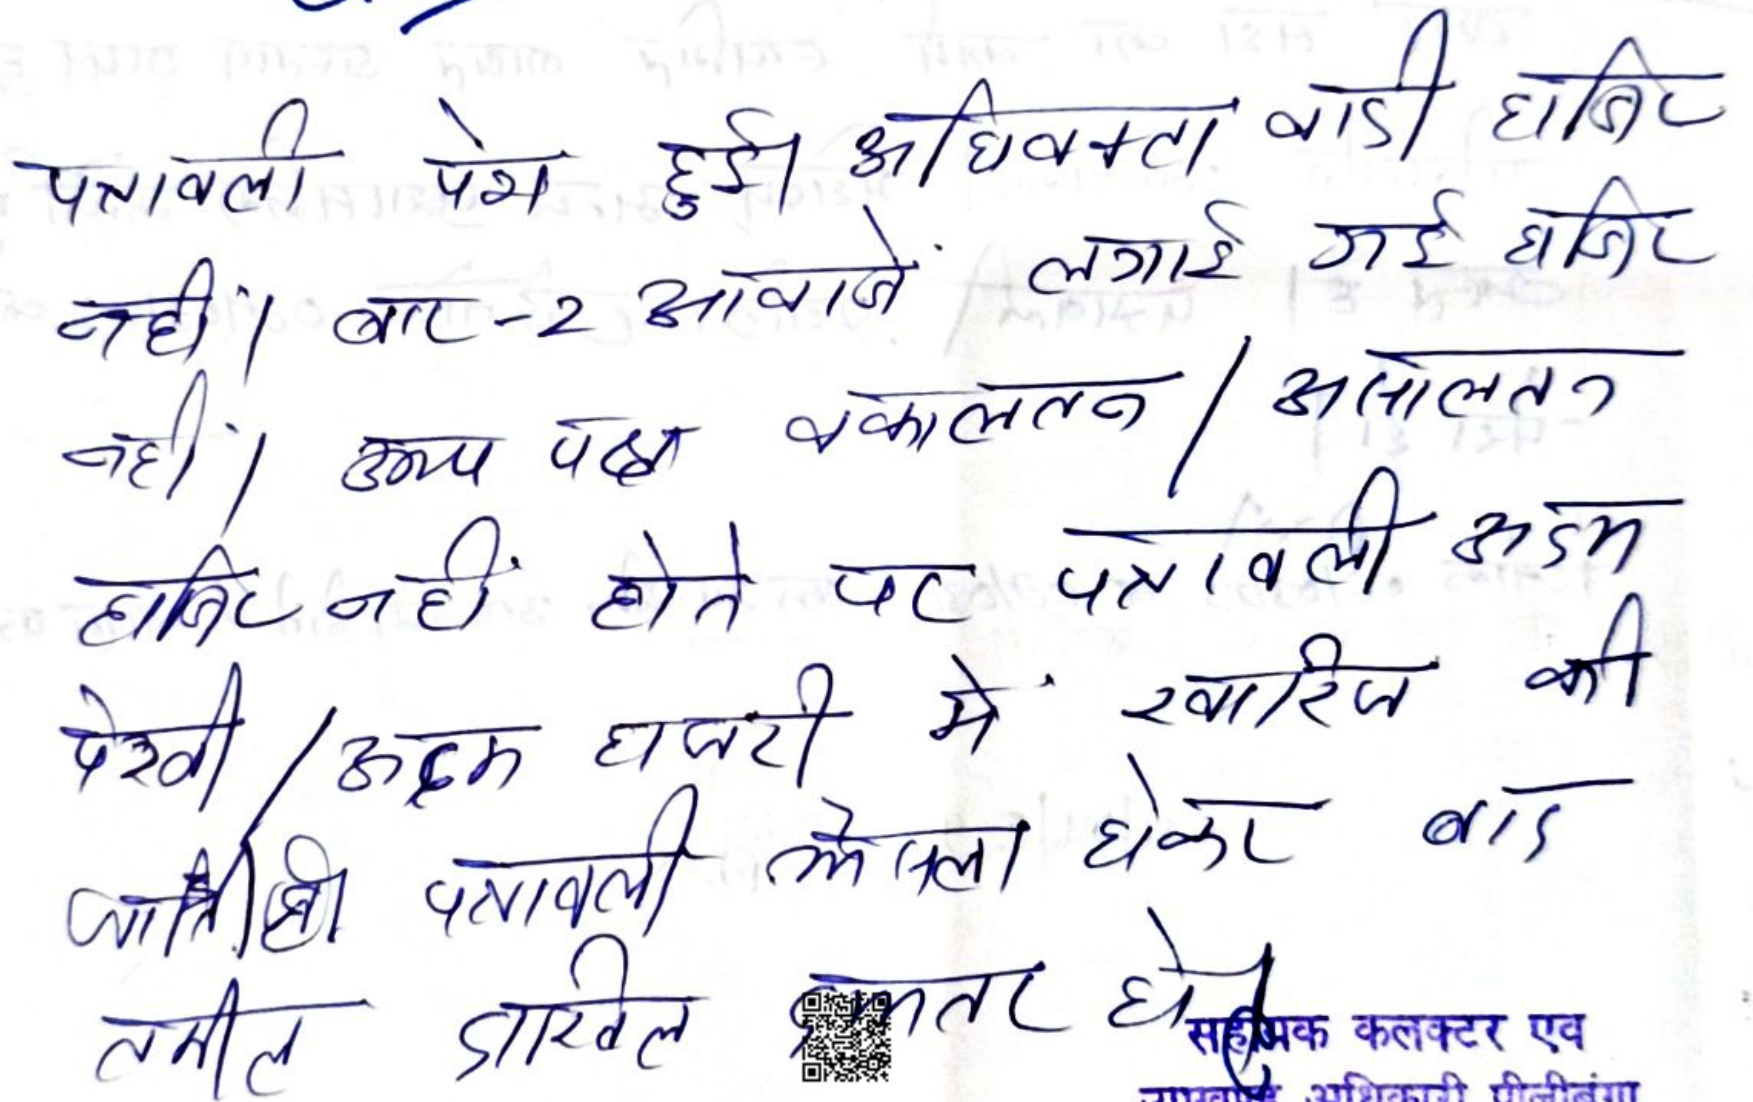 पत्रावली पेश हुई। अधिवक्ता वादी हाजिर
नहीं। बार-2 आवाजें लगाई गई हाजिर
नहीं। उभय पक्ष वकालतन / असालतन
हाजिर नहीं होने पर पत्रावली अदम
पैरवी / अदम हाजरी में खारिज की
जाती है। पत्रावली फैसला होकर बाद
तामील दाखिल दफ्तर हो।
सहायक कलक्टर एव
उपखण्ड अधिकारी पीलीबंगा